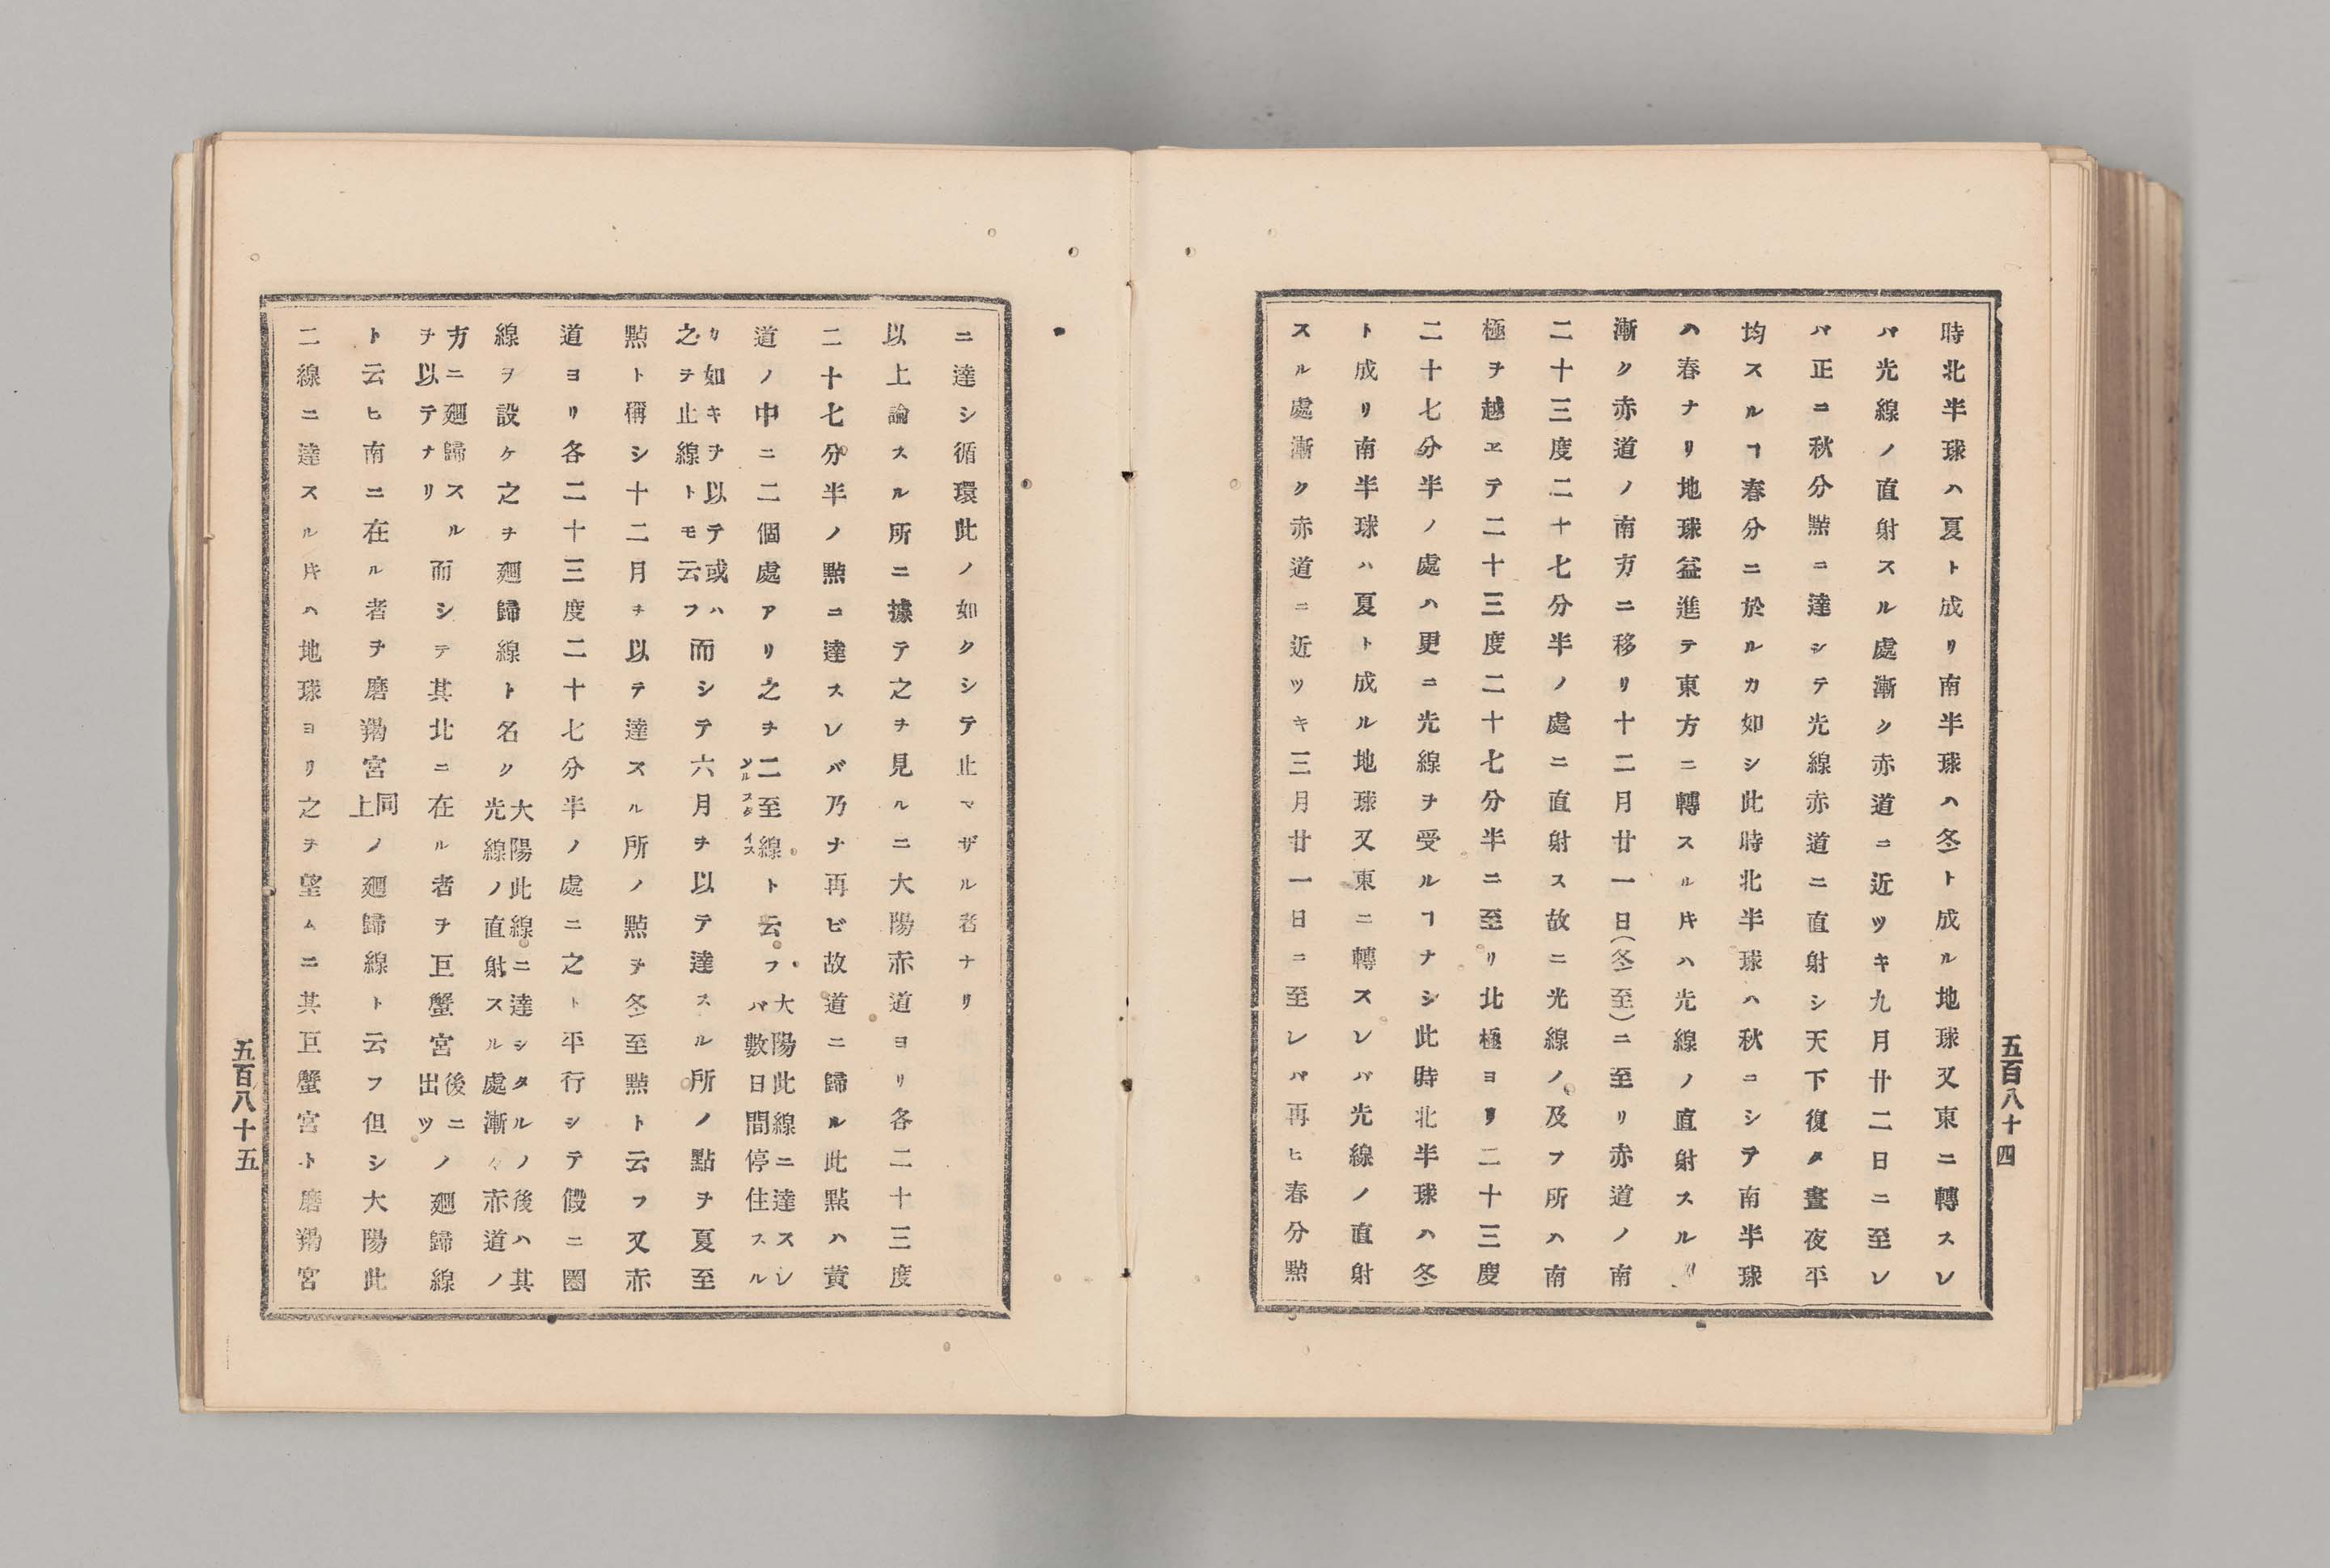 時北半球ハ夏ト成リ南半球ハ冬ト成ル地球又東ニ轉スレ
バ光線ノ直射スル處漸ク赤道ニ近ツキ九月廿二日ニ至レ
バ正ニ秋分㸃ニ達シテ光線赤道ニ直射シ天下復タ晝夜平
均スルヿ春分ニ於ルカ如シ此時北半球ハ秋ニシテ南半球
ハ春ナリ地球益進テ東方ニ轉スル𪜈ハ光線ノ直射スル
漸ク赤道ノ南方ニ移リ十二月廿一日(冬至)ニ至リ赤道ノ南
二十三度二十七分半ノ處ニ直射ス故ニ光線ノ及フ所ハ南
極ヲ越ヱテ二十三度二十七分半ニ至リ北極ヨリ二十三度
二十七分半ノ處ハ更ニ光線ヲ受ルヿナシ此時北半球ハ冬
ト成リ南半球ハ夏ト成ル地球又東ニ轉スレバ光線ノ直射
スル處漸ク赤道ニ近ツキ三月廿一日ニ至レバ再ヒ春分㸃
五百八十四
ニ達シ循環此ノ如クシテ止マザル者ナリ
以上論スル所ニ據テ之ヲ見ルニ大陽赤道ヨリ各二十三度
二十七分半ノ㸃ニ達スレバ乃ナ再ビ故道ニ歸ル此㸃ハ黃
道ノ中ニ二個處アリ之ヲ二至線ト云フ
ソルスタイス
大陽此線ニ達スレ
バ數日間停住スル
リ如キヲ以テ或ハ
之ヲ止線トモ云フ
而シテ六月ヲ以テ達スル所ノ㸃ヲ夏至
㸃ト稱シ十二月ヲ以テ達スル所ノ㸃ヲ冬至㸃ト云フ又赤
道ヨリ各二十三度二十七分半ノ處ニ之ト平行シテ假ニ圈
線ヲ設ケ之ヲ廻歸線ト名ク
大陽此線ニ達シタルノ後ハ其
光線ノ直射スル處漸々赤道ノ
方ニ廻歸スル
ヲ以テナリ
而シテ其北ニ在ル者ヲ巨蟹宮
後ニ
出ツ
ノ廻歸線
ト云ヒ南ニ在ル者ヲ磨羯宮
同
上
ノ廻歸線ト云フ但シ大陽此
二線ニ達スル𪜈ハ地球ヨリ之ヲ望ムニ其巨蟹宮ト磨羯宮
五百八十五